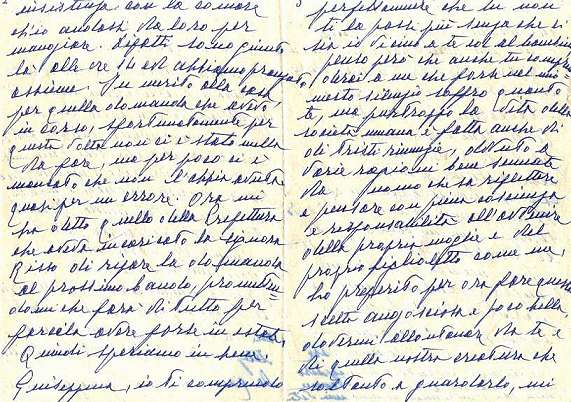 insistenza con la comare
ch'io andassi da loro per
mangiare. Difatti sono giunto
là alle ore 14 ed abbiamo pranzato
assieme. In merito alla casa,
per quella domanda che avevo
in corso, sfortunatamente per
questa volta non ci è stato nulla
da fare, ma per poco ci è
mancato che non l'abbia avuta
quasi per un errore. Ora mi
ha detto quello della Prefettura
che aveva incaricato la signora
Risso di rifare la domanda
al prossimo bando, prometten=
domi che farà di tutto per
farcela avere forse in estate.
Quindi speriamo in bene.
Giuseppina, io ti comprendo
perfettamente che tu non
ne la possi più senza che ci
sia io vicino a te ed al bambino
penso però che anche tu compren
derai a me che forse nel mio
mesto silenzio soffro quanto
te, ma purtroppo la vita della
società umana è fatta anche di
di tristi rinunzie, dovuto a
varie ragioni ben sensate
da uomo che sa riflettere
e pensare con piena coscienza
e responsabilità all'avvenire
della propria moglie e del
proprio figlioletto come me,
ho preferito per ora fare questa
scelta angosciosa e poco bella
dovermi allontanar da te e
di quella nostra creatura che
soltanto a guardarlo, mi